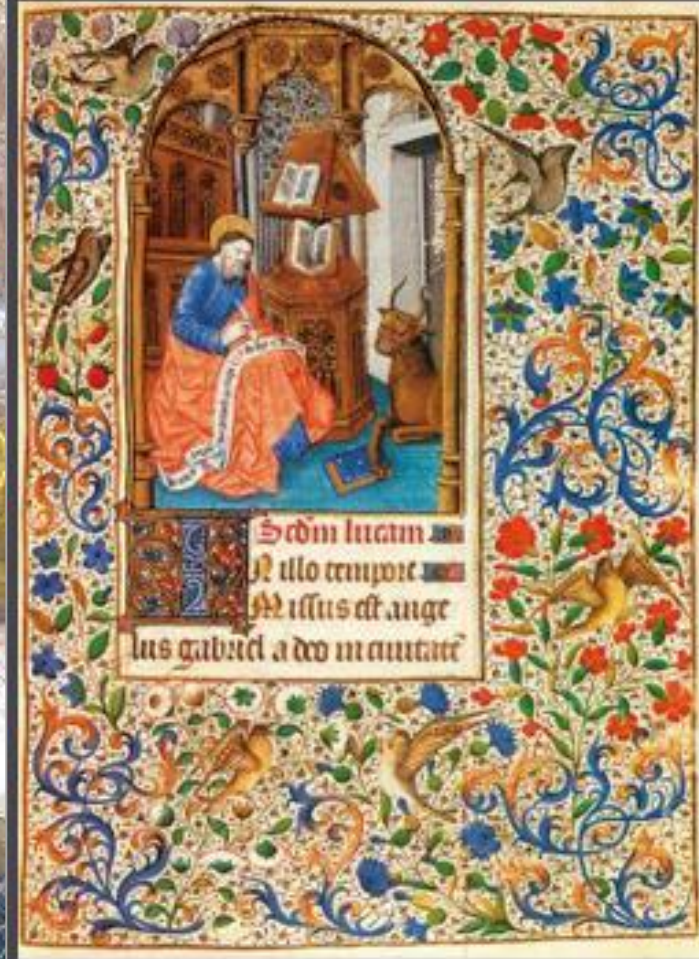 Scdm lucam
IN illo tempore
Missus est ange
lus gabriel a deo in ciuitatē